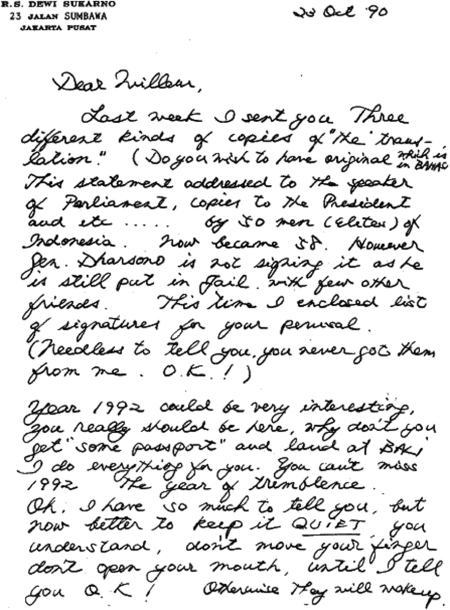 R.S. DEWI SUKARNO
23 JALAN SUMBAWA
JAKARTA PUSAT
23 Oct '90
Dear Willem,
Last week I sent you Three
different kinds of copies of "the trans-
lation." (Do you wish to have original which is
in BAHASA
This statement addressed to the speaker
of Parliament, copies to the President
and etc ..... by 50 men (Elites) of
Indonesia. Now became 58. However
Gen. Dharsono is not signing it as he
is still put in Jail with few other
friends. This time I enclosed list
of signatures for your perusal.
(Needless to tell you, you never got them
from me. O.K.!)
Year 1992 could be very interesting,
you really should be here, why don't you
get "some passport" and land at BALI
I do everything for you. You can't miss
1992 The year of tremblence.
Oh, I have so much to tell you, but
now better to keep it QUIET, you
understand, don't move your finger
don't open your mouth, until I tell
you O.K! Otherwise They will wakeup.